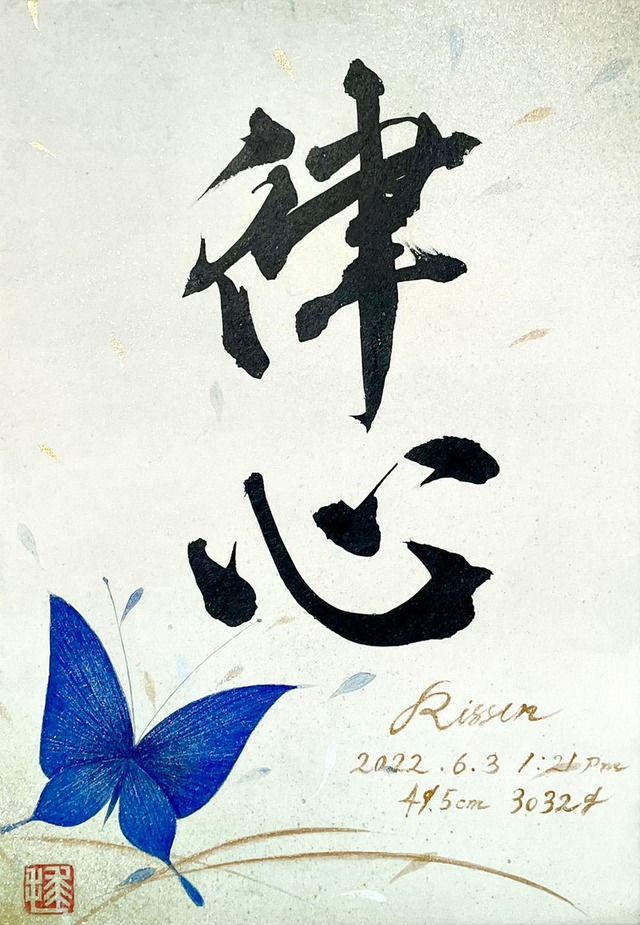 律心
Rissin
2022.6.3 1:21 pm
49.5cm 3032g